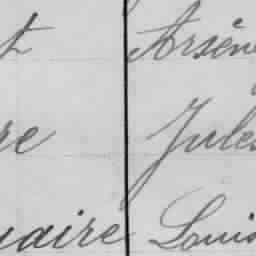 t Arsène
re Jules
uaire Louis